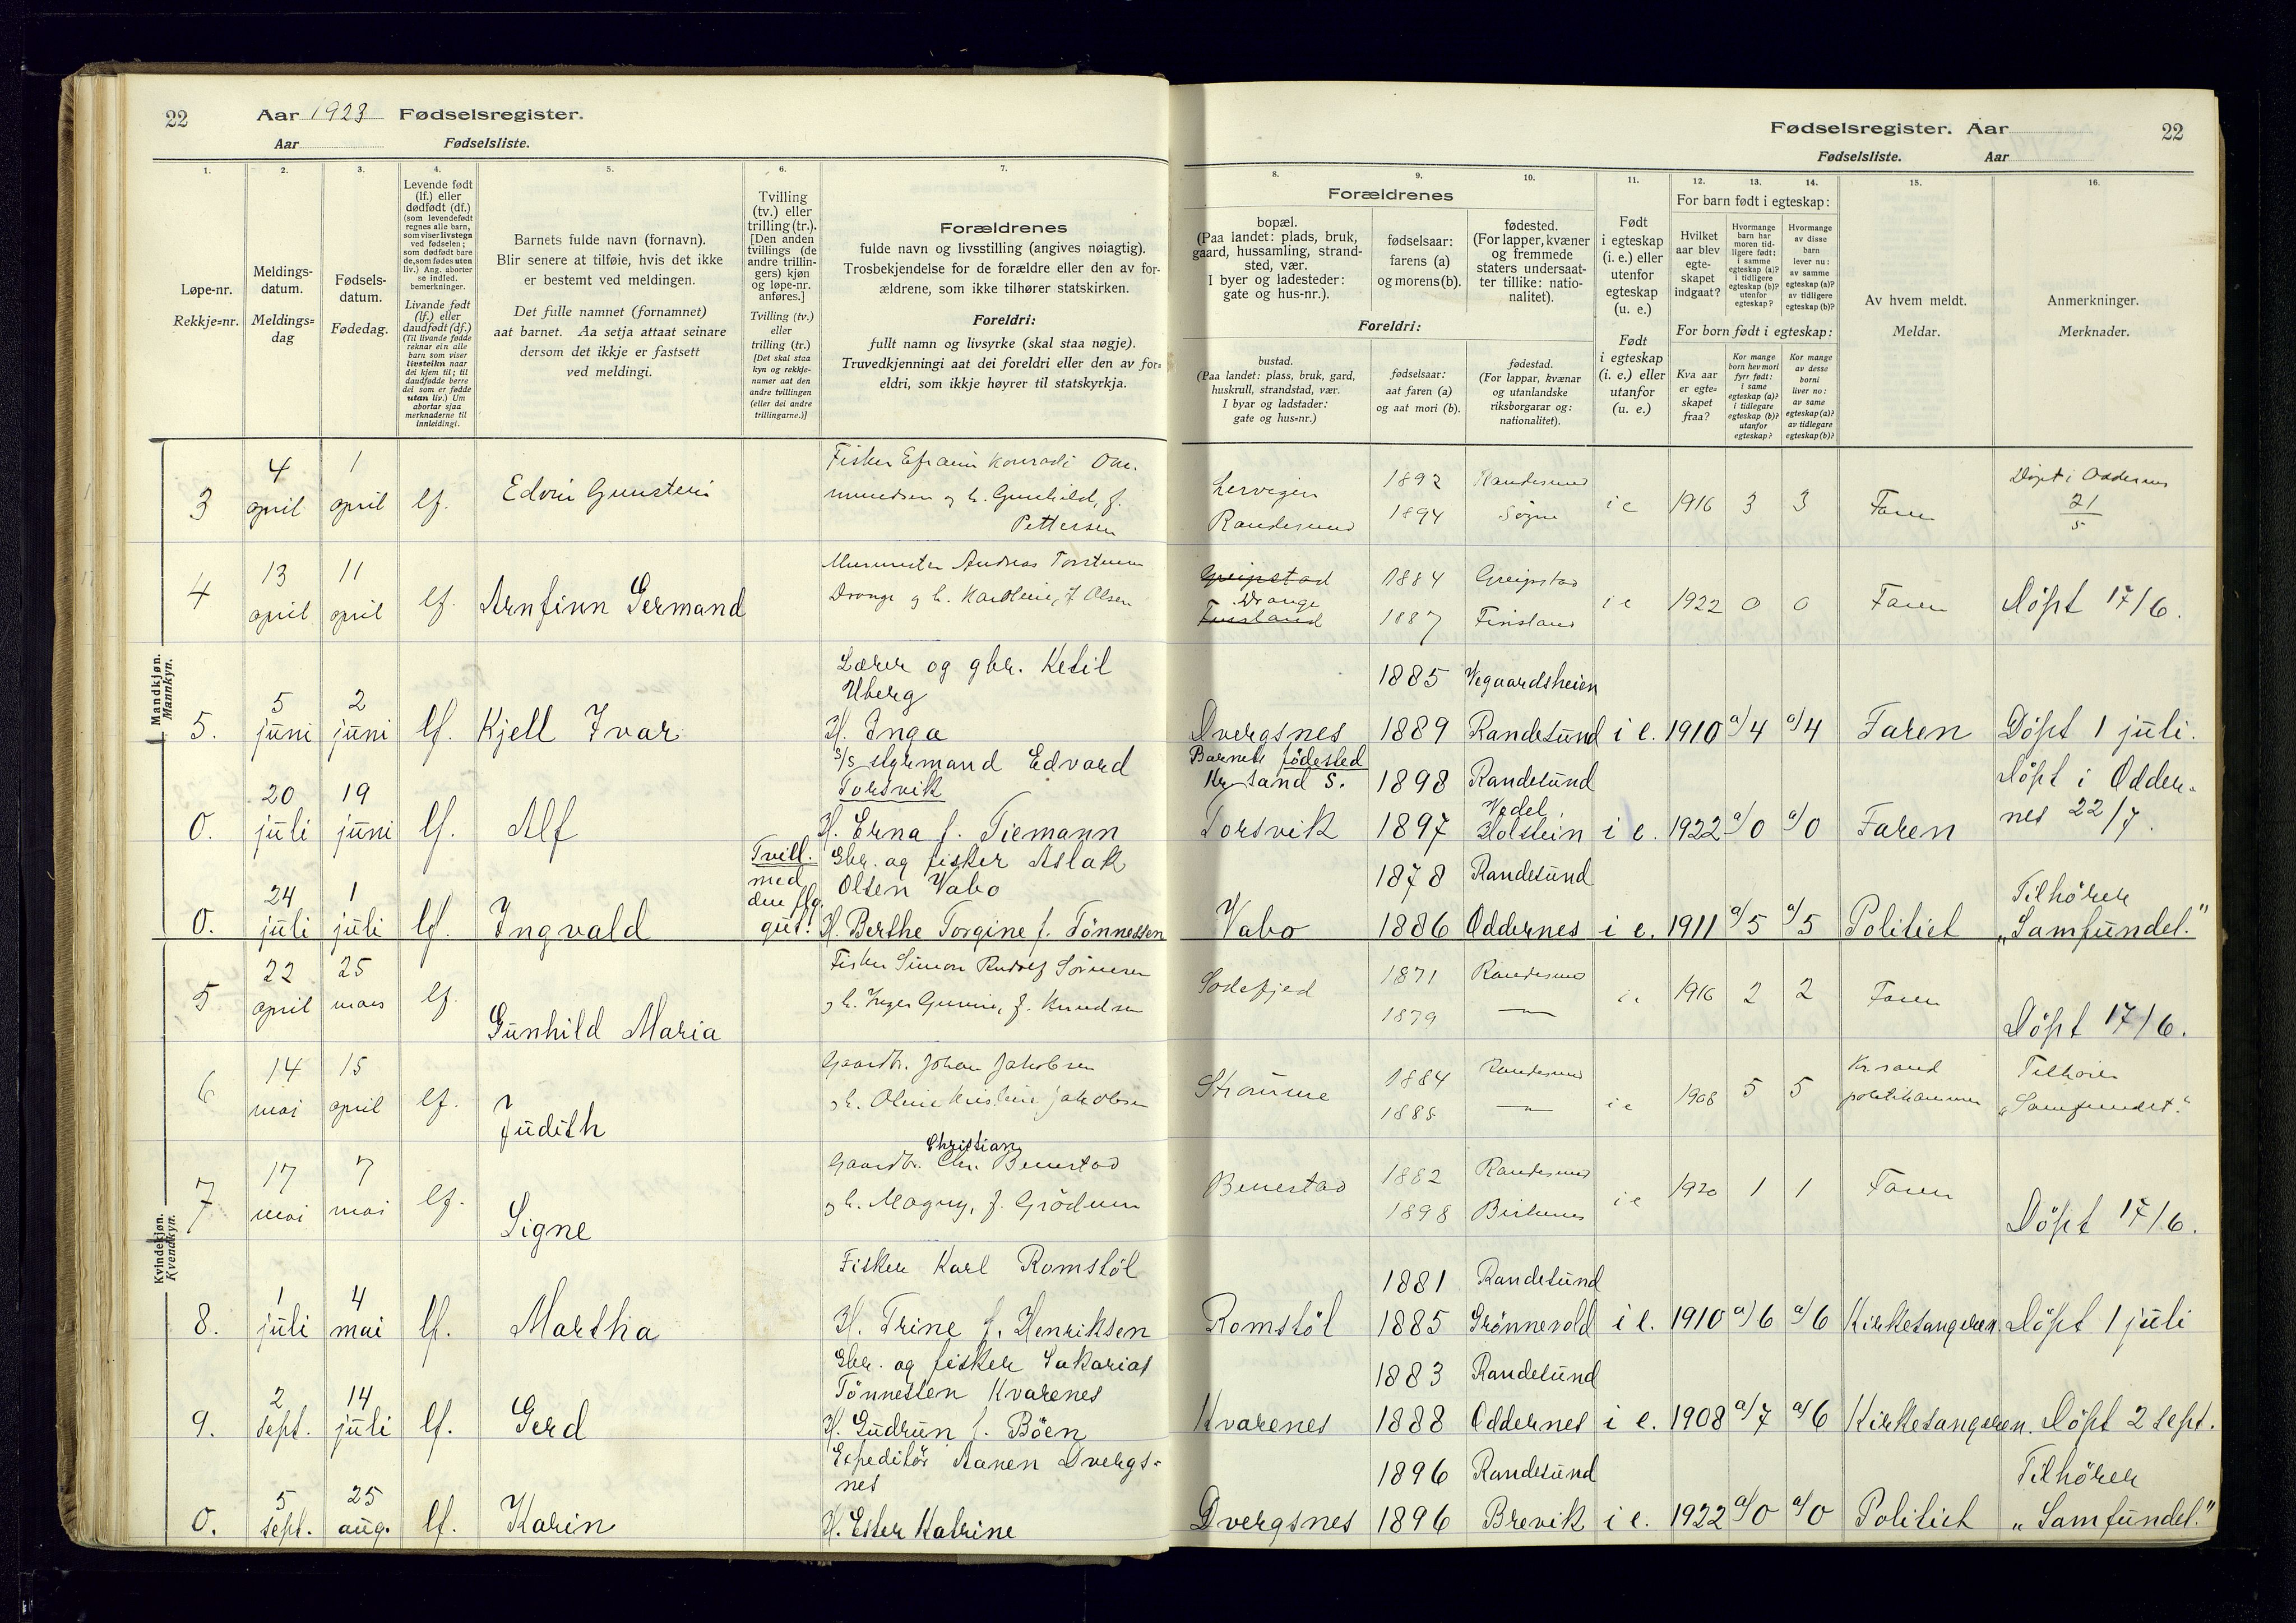 22
Aar 1923 Fødselsregister.
Aar Fødselsliste.
Fødselsregister. Aar
22
Fødselsliste. Aar
1.
Løpe-nr.
Rekkje=nr.
2.
Meldings-
datum.
Meldings=
dag
3.
Fødsels-
datum.
Fødedag.
4.
Levende født
(lf.) eller
dødfødt (df.)
(som levendefødt
regnes alle barn,
som viser livstegn
ved fødselen;
som dødfødt bare
de, som fødes uten
liv.) Ang. aborter
se indled.
bemerkninger.
Livande født
(lf.) eller
daudfødt (df.)
(Til livande fødde
reknar ein alle
barn som viser
livsteikn naar
dei kjem til; til
daudfødde berre
dei som er fødde
utan liv.) Um
abortar sjaa
merknaderne til
innleidingi.
5.
Barnets fulde navn (fornavn).
Blir senere at tilføie, hvis det ikke
er bestemt ved meldingen.
Det fulle namnet (fornamnet)
aat barnet. Aa setja attaat seinare
dersom det ikkje er fastsett
ved meldingi.
6.
Tvilling
(tv.) eller
trilling (tr.).
[Den anden
tvillings (de
andre trillin-
gers) kjøn
og løpe-nr.
anføres.]
Tvilling (tv.)
eller
trilling (tr.)
[Det skal staa
kyn og rekkje-
numer aat den
andre tvillingen
(eller dei andre
trillingarne.)]
7.
Forældrenes
fulde navn og livsstilling (angives nøiagtig).
Trosbekjendelse for de forældre eller den av for-
ældrene, som ikke tilhører statskirken.
Foreldri:
fullt namn og livsyrke (skal staa nøgje).
Truvedkjenningi aat dei foreldri eller den av for=
eldri, som ikkje høyrer til statskyrkja.
Forældrenes
8.
bopæl.
(Paa landet: plads, bruk,
gaard, hussamling, strand-
sted, vær.
I byer og ladesteder:
gate og hus-nr.).
9.
fødselsaar:
farens (a)
og morens (b).
10.
fødested.
(For lapper, kvæner
og fremmede
staters undersaat-
ter tillike: natio-
nalitet).
Foreldri:
bustad.
(Paa landet: plass, bruk, gard,
huskrull, strandstad, vær.
I byar og ladstader:
gate og hus=nr.)
fødselsaar:
aat faren (a)
og aat mori (b).
fødestad.
(For lappar, kvænar
og utanlandske
riksborgarar og:
nationalitet).
11.
Født
i egteskap
(i. e.) eller
utenfor
egteskap
(u. e.)
Født
i egteskap
(i. e.) eller
utanfor
(u. e.)
12. 13. 14.
For barn født i egteskap:
Hvilket
aar blev
egte-
skapet
indgaat?
Hvormange
barn har
moren tid-
ligere født:
i samme
egteskap (a)?
i tidligere
egteskap (b)?
utenfor
egteskap?
Hvormange
av disse
barn
lever nu:
av samme
egteskap (a)?
av tidligere
egteskap (b)?
For born født i egteskap:
Kva aar
er egte=
skapet
fraa?
Kor mange
born hev mori
fyrr født:
i same
egteskap (a)?
i tidlegare
egteskap (b)?
utanfor
egteskap?
Kor mange
av desse
borni
liver no:
av same
egteskap (a)?
av tidlegare
egteskap (b)?
15.
Av hvem meldt.
Meldar.
16.
Anmerkninger.
Merknader.
Mandkjøn.
Mannkyn.
3
4
april
1
april
lf.
Fisker Efraim Konradi
mundsen og h. Gunhild, f.
Pettersen
Randesund
1892
1894
Randesund
Søgne
i e
1916
3
3
Faren
Døpt i Oddernes
21
5
4
13
april
11
april
lf.
Arnfinn Germand
Murmester Andreas
Drange og h. Karoline, f Olsen
Greipstad
Drange
Finsland
1884
1887
Greipstad
Finsland
i e
1922
0
0
Faren
Döpt 17/6.
5.
5
jūni
2
jūni
lf.
Kjell Ivar
Lærer og gbr. Ketil
Uberg
H. Inga
Dvergsnes
1885
1889
Vegaardsheien
Randesūnd
i e.
1910
a/4
a/4
Faren
Döpt 1 jūli.
0.
20
jūli
19
jūni
lf.
Alf
S/s styrmand Edvard
Torsvik
H. Erna f. Tiemann
Barnets födested
Kr.sand S.
Torsvik
1898
1897
Randesūnd
Vedel
Holstein
i e.
1922
a/0
a/0
Faren
Döpt i Odder-
nes 22/7.
0.
24
jūli
1
jūli
lf.
Ingvald
Tvill.
med
den flg.
gūt!
Gbr. og fisker Aslak
Olsen Vabo
H. Berthe Torgine f. Tönnessen
Vabo
1878
1886
Randesūnd
Oddernes
i e.
1911
a/5
a/5
Politiet
Tilhörer
„Samfūndet."
Kvindekjøn.
Kvendkyn.
5
22
april
25
mars
lf.
Gūnhild Maria
Fisker Simon Rudolf Sørensen
og h. Inger Gurine, f. Knudsen
Sodefjed
1871
1879
Randesund
—
i e
1916
2
2
Faren
Döpt 17/6.
6
14
mai
15
april
lf.
Jūdith
Gaardbr. Johan Jakobsen
og h. Oline Kristine Jakobsen
Strømme
1884
1888
Randesund
—
i e
1908
5
5
Kr.sand
politikammer
Tilhører
„Samfundet."
7
17
mai
7
mai
lf.
Signe
Christian
Gaardbr. Chr. Benestad
og h. Magny, f. Grödum
Benestad
1882
1898
Randesund
Birkenes
i e
1920
1
1
Faren
Döpt 17/6.
8.
1
jūli
4
mai
lf.
Martha
Fisker Karl Romstöl
H. Trine f. Henriksen
Romstöl
1881
1885
Randesūnd
Grönnevold
i e.
1910
a/6
a/6
Kirkesangeren.
Döpt 1 jūli
9.
2
sept.
14
jūli
lf.
Gerd
Gbr. og fisker Sakarias
Tönnessen Kvarenes
H. Gūdrūn f. Böen
Kvarenes
1883
1888
Randesūnd
Oddernes
i e.
1908
a/7
a/6
Kirkesangeren.
Döpt 2 sept.
0.
5
sept.
25
aūg.
lf.
Karin
Expeditör Aanen Dvergs-
nes
H. Ester Katrine
Dvergsnes
1896
1896
Randesūnd
Brevik
i e.
1922
a/0
a/0
Politiet
Tilhörer
„Samfūndet."